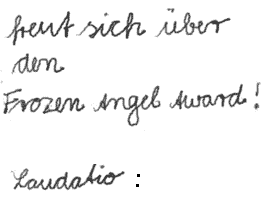 freut sich über
den
Frozen Angel Award!
Laudatio :